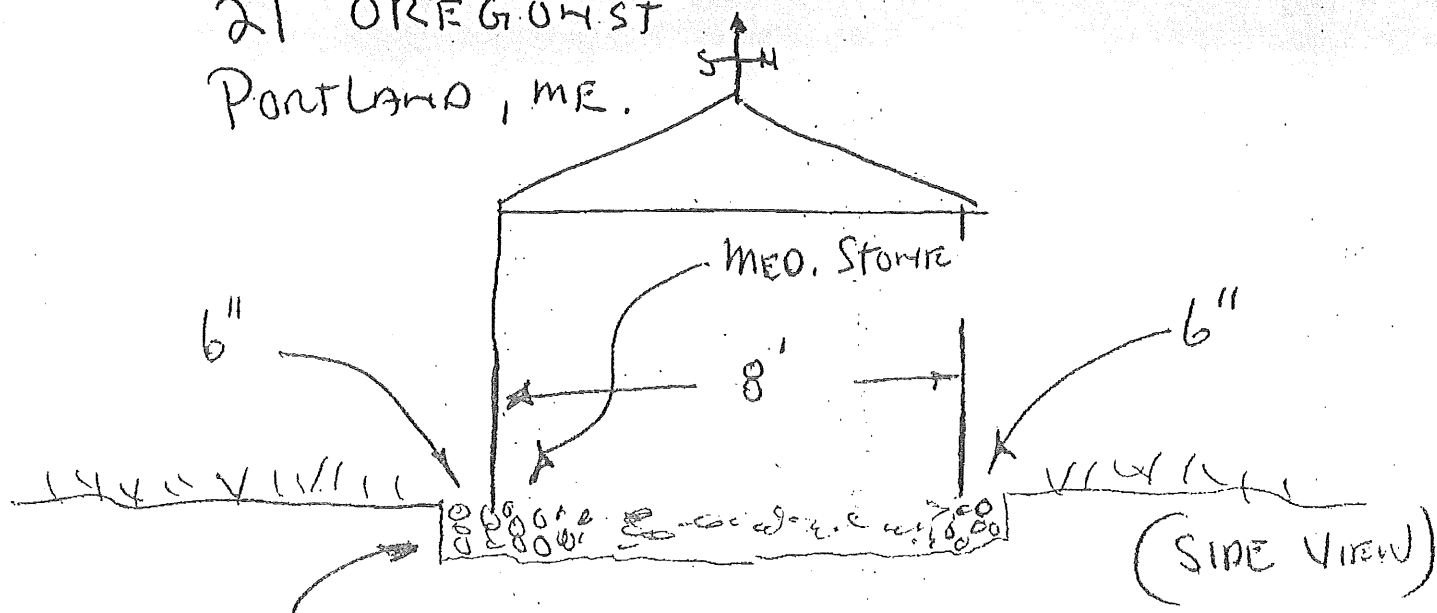 21 OREGON ST
PORTLAND, ME.
S N
MED. STONE
6"
8'
6"
(SIDE VIEW)